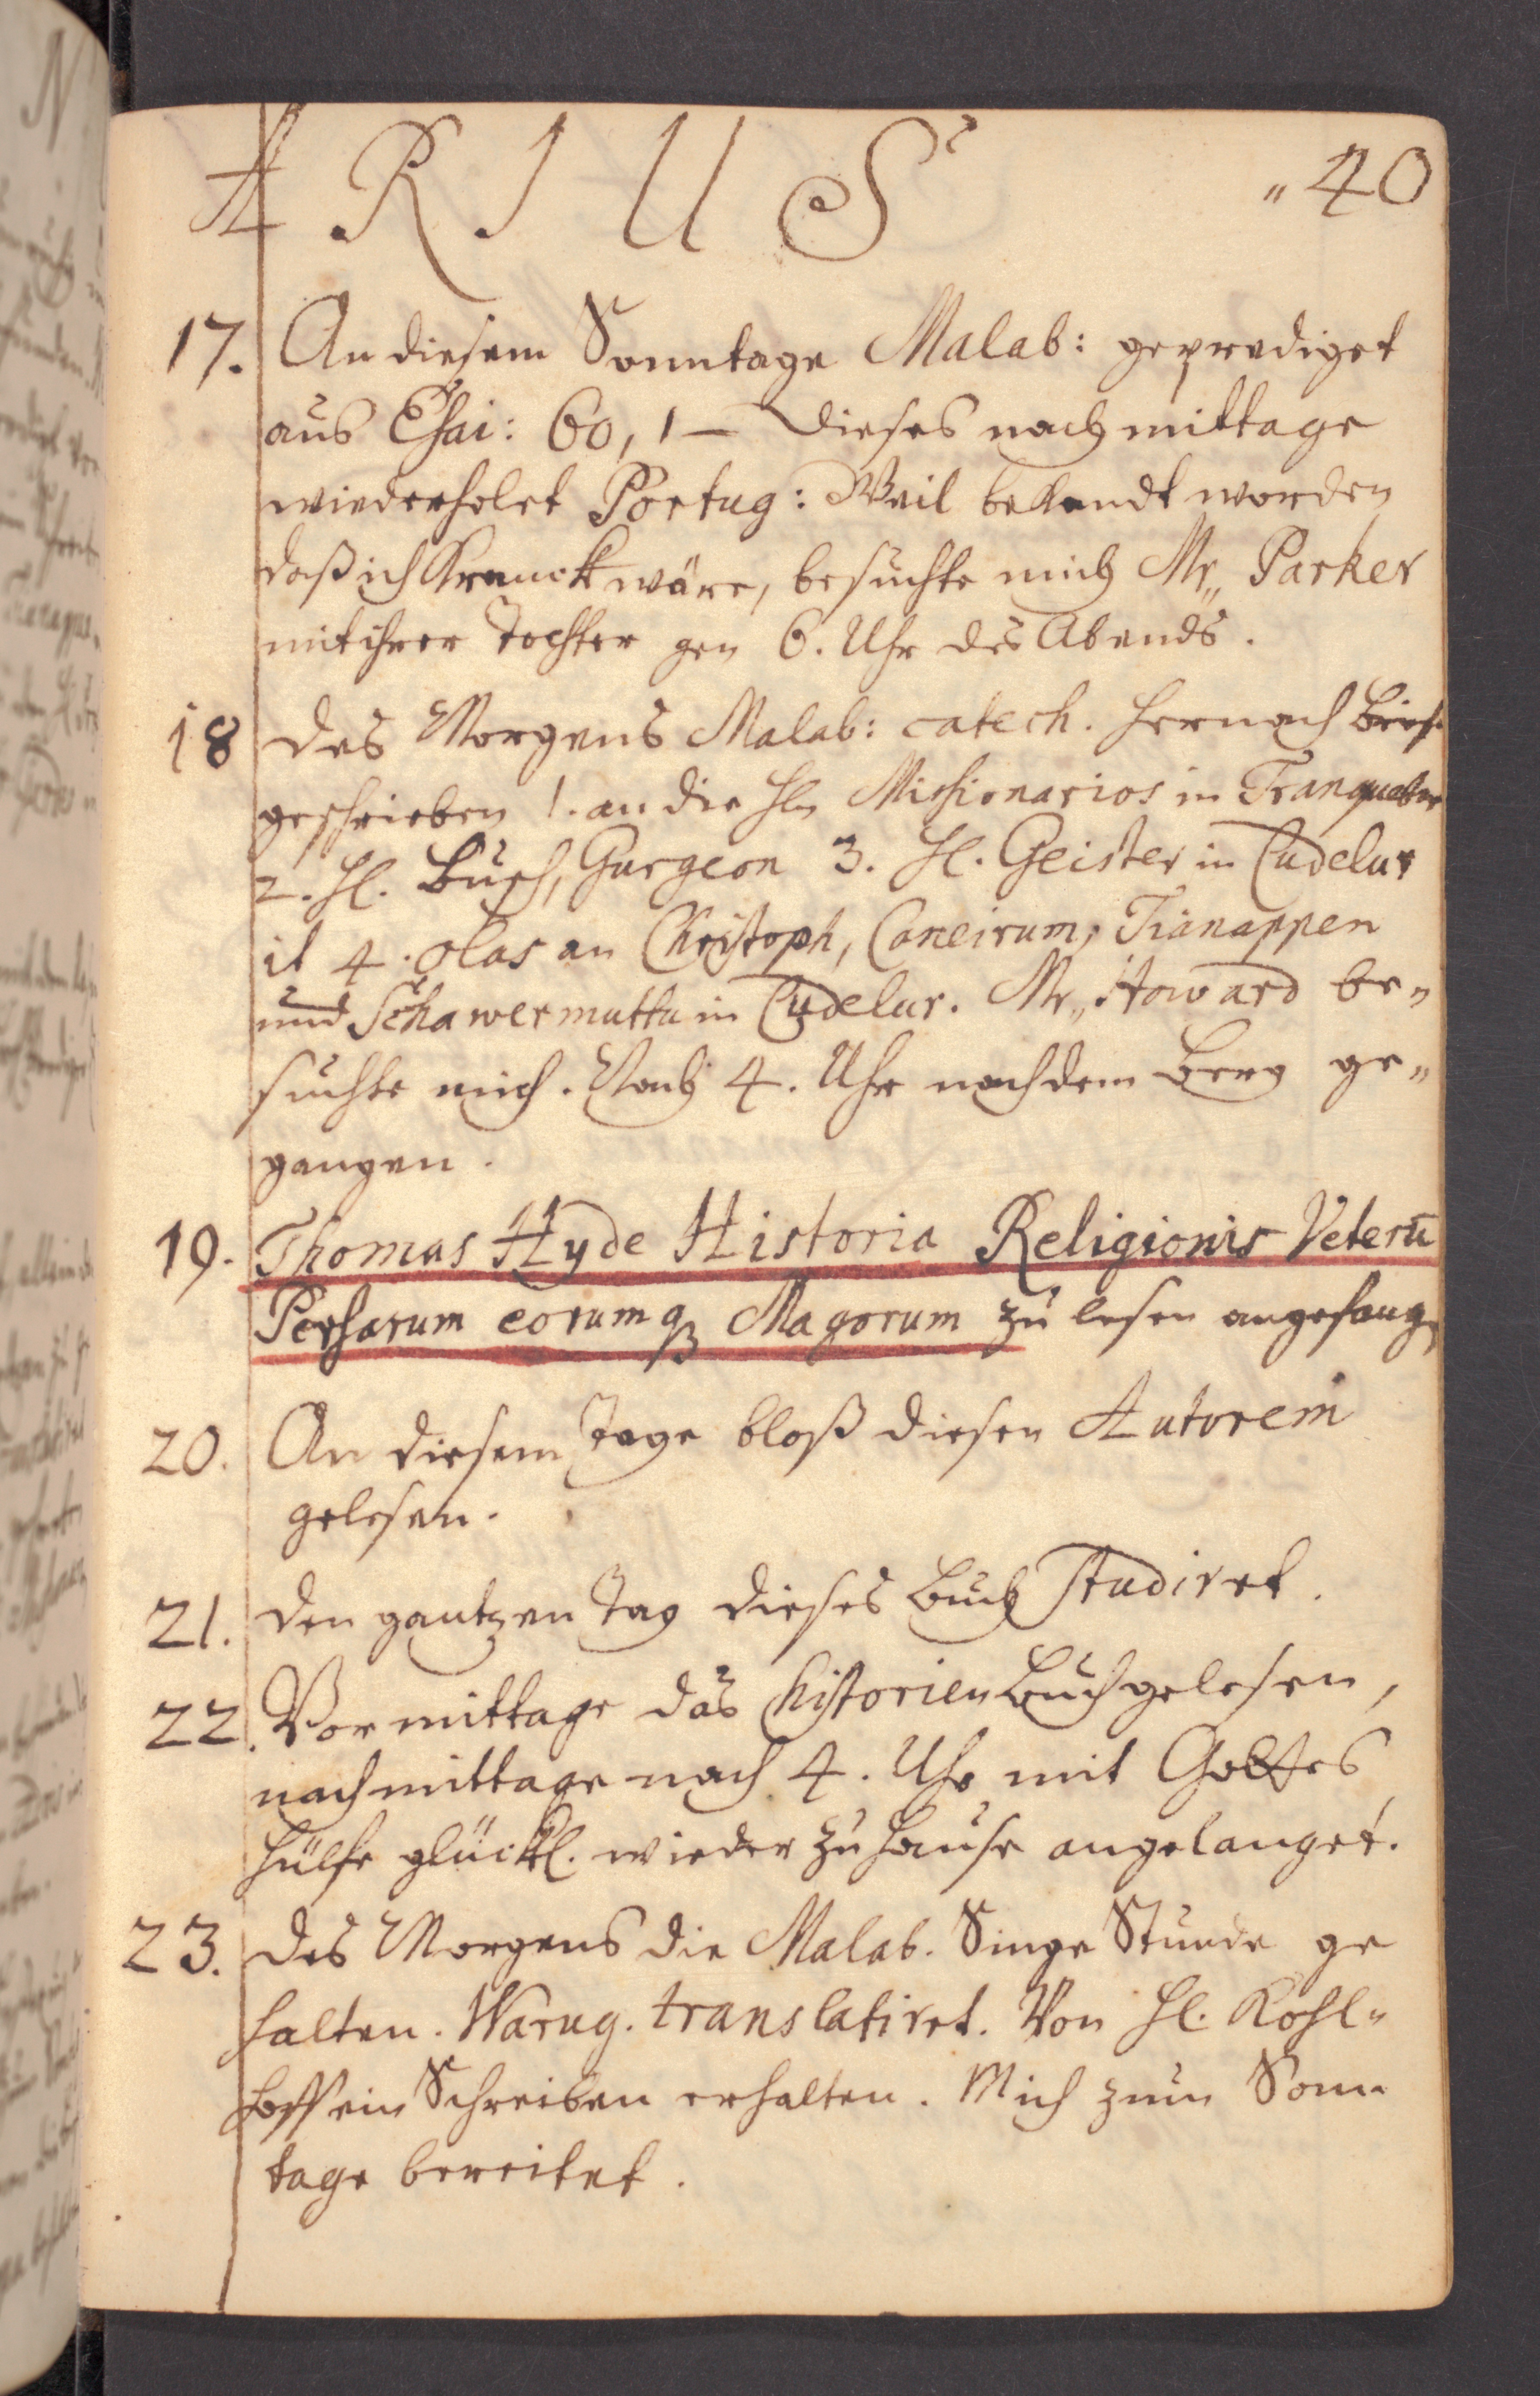 A R I U S „40
17. An diesem Sonntage Malab: geprediget
aus Esai: 60, 1 – dieses nachmittage
wiederholet Portug: Weil bekandt worden
daß ich Kranck wäre, besuchte mich Mr„ Parker
mit ihrer Tochter gen 6. Uhr des Abends.
18 des Morgens Malab: catech. hernach
geschrieben 1. an die Hln Missionarios in Tranquebar
2. Hl. Busch, Gurgeon 3. Hl. Geister in Cudelur
it 4. olas an Christoph, Caneirum, Tianappen
und Schawermuttu in Cudelur. Mr„ Howard be„
suchte mich. Nach 4. Uhr nach dem Berg ge„
gangen.
19. Thomas Hyde Historia Religionis Veterū
Persarum eorumq Magorum zu lesen angefang
20. An diesem Tage bloß diesen Autorem
gelesen.
21. den gantzen Tag dieses Buch studiret.
22. Vormittage das Historien Buch gelesen,
nachmittage nach 4. Uhr mit Gottes
Hülfe glückl. wieder zu Hause angelanget.
23. des Morgens die Malab. Singe Stunde ge
halten. Warug. translatiret. Von Hl. Kohl„
hoff ein Schreiben erhalten. Mich zum Sonn
tage bereitet.